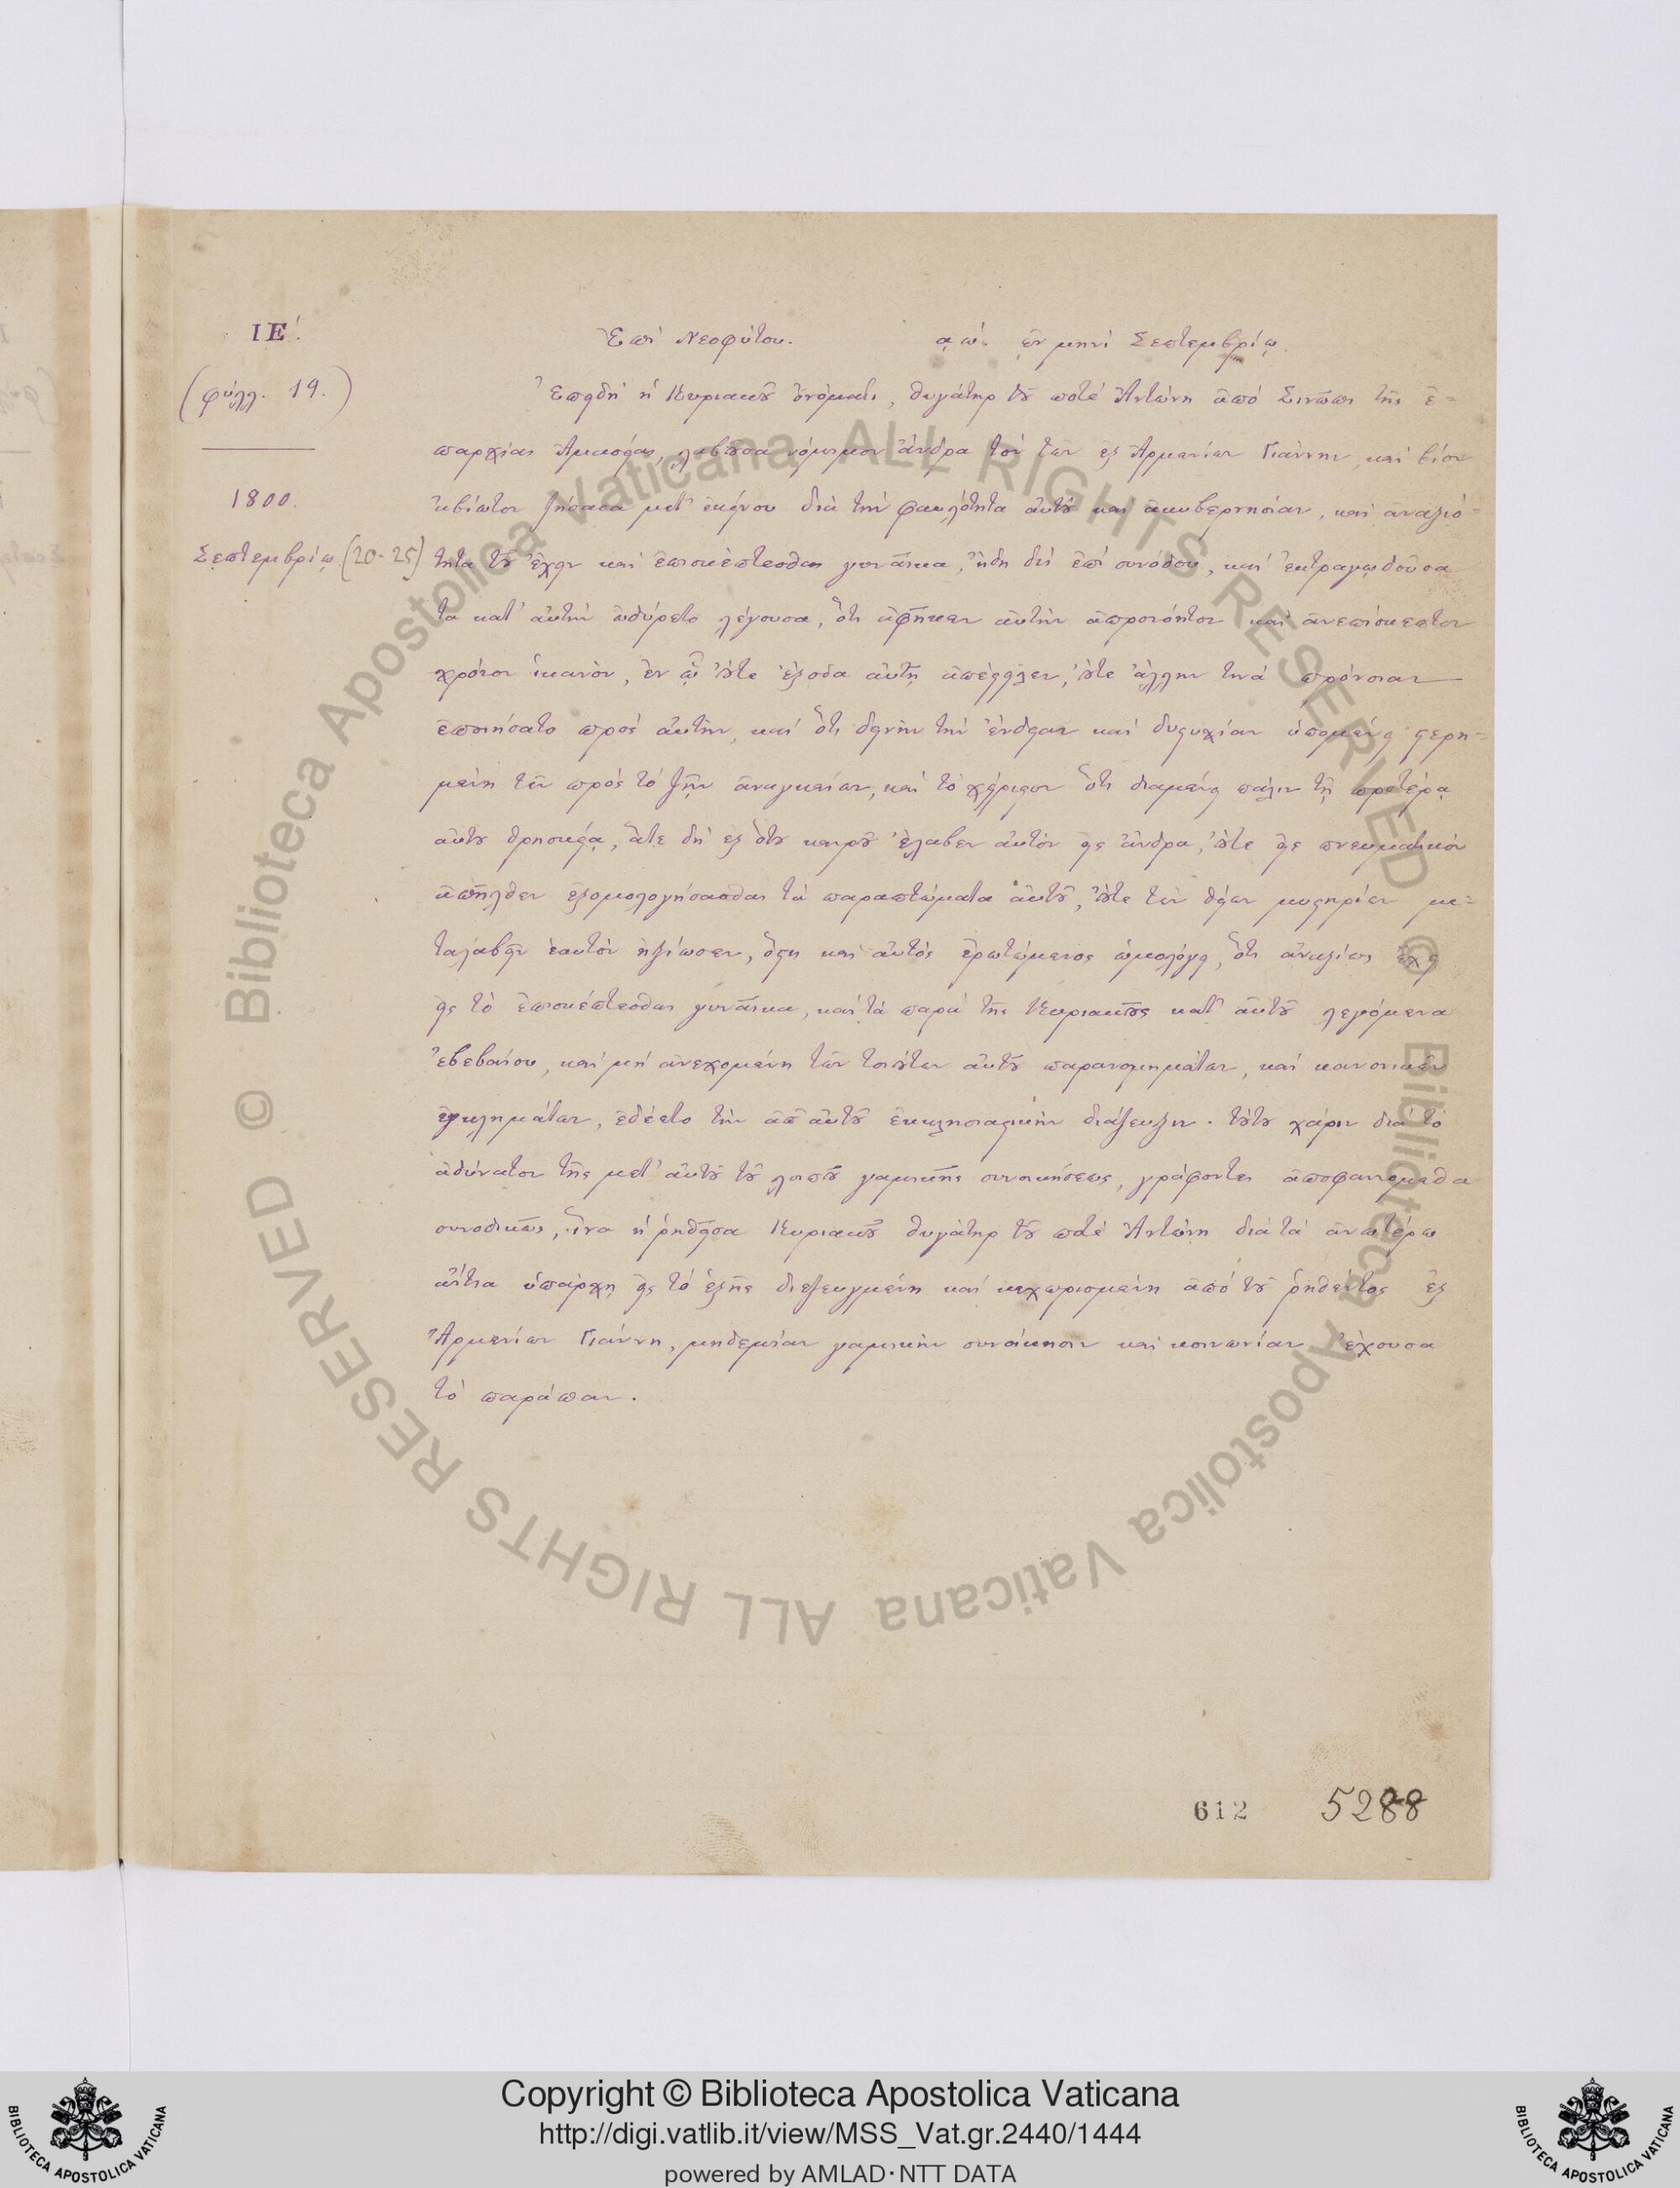 ΙΕ΄.
(φύλλ. 19.)
1800.
Σεπτεμβρίῳ (20-25)
Ἐπὶ Νεοφύτου. ͵αω΄. ἐν μηνὶ Σεπτεμβρίῳ.
Ἐπειδὴ ἡ Κυριακοῦ ὀνόματι, θυγάτηρ τοῦ ποτὲ Ἀντώνη ἀπὸ Σινώπη τῆς ἐ-
παρχίας Ἀμασείας, λαβοῦσα νόμιμον ἄνδρα τὸν τῶν ἐξ Ἀρμενίων Γιάννην, καὶ βίον
ἀβίωτον ζήσασα μετ' ἐκείνου διὰ τὴν φαυλότητα αὐτοῦ καὶ ἀκυβερνησίαν, καὶ ἀναξιό-
τητα τοῦ ἔχειν καὶ ἐπισκέπτεσθαι γυναῖκα, ἤδη δὴ ἐπὶ συνόδου, καὶ ἐκτραγῳδοῦσα
τὰ κατ' αὐτὴν ὠδύρετο λέγουσα, ὅτι ἀφῆκεν αὐτὴν ἀπρονόητον καὶ ἀνεπίσκεπτον
χρόνον ἱκανὸν, ἐν ᾧ οὔτε ἔξοδα αὐτῇ ἀπέστειλεν, οὔτε ἄλλην τινὰ πρόνοιαν
ἐποιήσατο πρὸς αὐτὴν, καὶ ὅτι δεινὴν τὴν ἔνδειαν καὶ δυστυχίαν ὑπομένει στερη-
μένη τῶν πρὸς τὸ ζῆν ἀναγκαίων, καὶ τὸ χείριστον ὅτι διαμένει πάλιν τῇ προτέρᾳ
αὐτοῦ θρησκείᾳ, ἅτε δὴ ἐξ ὅτου καιροῦ ἔλαβεν αὐτὸν εἰς ἄνδρα, οὔτε εἰς πνευματικὸν
ἀπῆλθεν ἐξομολογήσασθαι τὰ παραπτώματα αὐτοῦ, οὔτε τῶν θείων μυστηρίων με-
ταλαβεῖν ἑαυτὸν ἠξίωσεν, ὅστις καὶ αὐτὸς ἐρωτώμενος ὡμολόγει, ὅτι ἀναξίως ἔχει
εἰς τὸ ἐπισκέπτεσθαι γυναῖκα, καὶ τὰ παρὰ τῆς Κυριακοῦς κατ' αὐτοῦ λεγόμενα
ἐβεβαίου, καὶ μὴ ἀνεχομένη τῶν τοιούτων αὐτοῦ παρανομημάτων, καὶ κανονικῶν
ἐγκλημάτων, ἐδέετο τὴν ἀπ' αὐτοῦ ἐκκλησιαστικὴν διάζευξιν. τούτου χάριν διὰ τὸ
ἀδύνατον τῆς μετ' αὐτοῦ τοῦ λοιποῦ γαμικῆς συνοικήσεως, γράφοντες ἀποφαινόμεθα
συνοδικῶς, ἵνα ἡ ῥηθεῖσα Κυριακοῦ θυγάτηρ τοῦ ποτὲ Ἀντώνη διὰ τὰ ἀνωτέρω
αἴτια ὑπάρχῃ εἰς τὸ ἑξῆς διεζευγμένη καὶ κεχωρισμένη ἀπὸ τοῦ ῥηθέντος ἐξ
Ἀρμενίων Γιάννη, μηδεμίαν γαμικὴν συνοίκησιν καὶ κοινωνίαν ἔχουσα
τὸ παράπαν.
612 5288
© Biblioteca Apostolica Vaticana ALL RIGHTS RESERVED © Biblioteca Apostolica Vaticana ALL RIGHTS RESERVED
BIBLIOTECA APOSTOLICA VATICANA
Copyright © Biblioteca Apostolica Vaticana
http://digi.vatlib.it/view/MSS_Vat.gr.2440/1444
powered by AMLAD·NTT DATA
BIBLIOTECA APOSTOLICA VATICANA